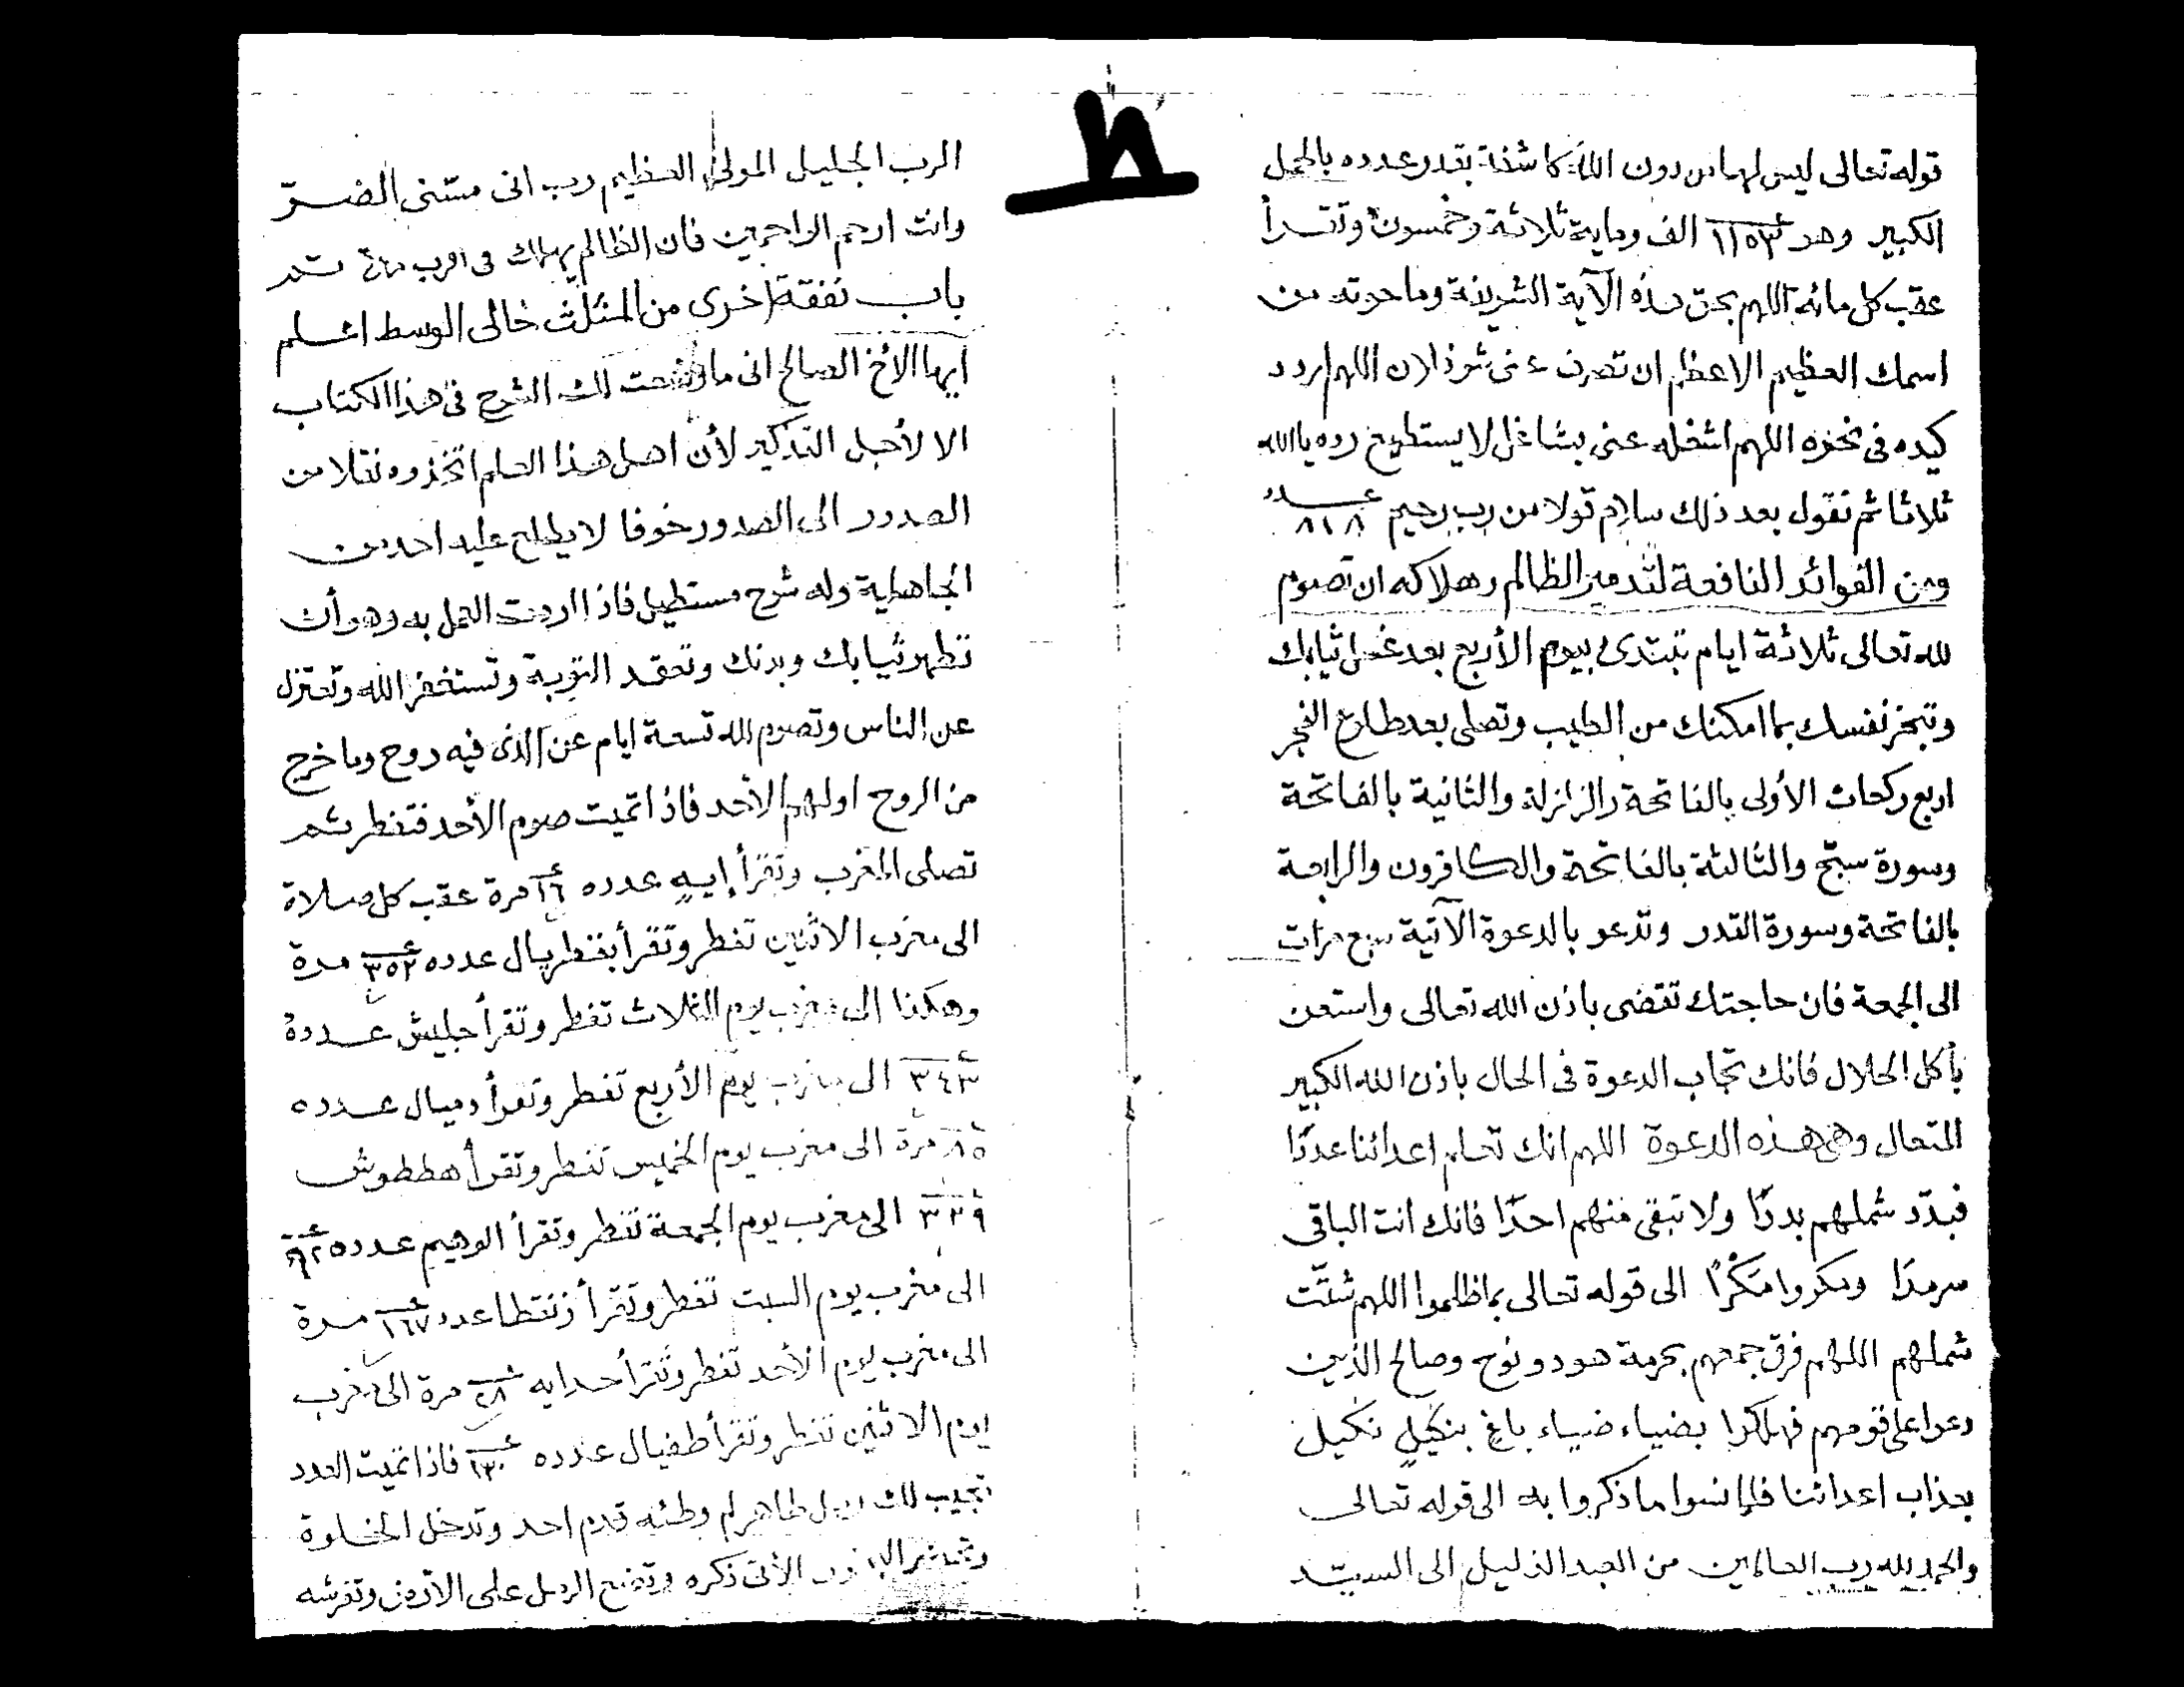 قوله تعالى ليس لها من دون الله كاشفة بقدر عدده بالجمل
الكبير وهو ١١٥٣ الف وماية ثلاثة وخمسون وتقرأ
عقب كل مائه اللهم بحق هذه الآية الشريفة وما حوته من
اسمك العظيم الاعظم ان تصرف عنى شر فلان اللهم اردد
كيده فى نحره اللهم اشغله عنى بشاغل لا يستطيع رده يا الله
ثلاثا ثم تقول بعد ذلك سلام قولا من رب رحيم عدد ٨١٨
ومن الفوائد النافعة لتدمير الظالم وهلاكه ان تصوم
لله تعالى ثلاثة ايام تبتدئ بيوم الأربع بعد غسل ثيابك
وتبخر نفسك بما امكنك من الطيب وتصلى بعد طلوع الفجر
اربع ركعات الأولى بالفاتحة والزلزلة والثانية بالفاتحة
وسورة سبح والثالثة بالفاتحة والكافرون والرابعة
بالفاتحة وسورة القدر وتدعو بالدعوة الآتية سبع مرات
الى الجمعة فان حاجتك تقضى باذن الله تعالى واستعن
بأكل الحلال فانك تجاب الدعوة فى الحال باذن الله الكبير
المتعال وهى هذه الدعوة اللهم انك تعلم اعدائنا عددًا
فبدّد شملهم بددًا ولا تبقى منهم احدًا فانك انت الباقى
سرمدًا ومكروا مَكْرًا الى قوله تعالى بما ظلموا اللهم شتّت
شملهم اللهم فرق جمعهم بحرمة هود ونوح وصالح الذين
دعوا على قومهم فهلكوا بضياء ضياء باغ بنكيلٍ نكيل
بعذاب اعدائنا فلما نسوا ما ذكروا به الى قوله تعالى
والحمد لله رب العالمين من العبد الذليل الى السيّد
الرب الجليل المولى العظيم رب انى مسّنى الضرّ
وانت ارحم الراحمين فان الظالم يهلك فى اقرب مدة تمد
باب نفقة اخرى من المثلّث خالى الوسط اعلم
ايها الأخ الصالح انى ما وضعت لك الشرح فى هذا الكتاب
الا لأجل التذكير لأن اهل هذا العلم اتخذوه نقلا من
الصدور الى الصدور خوفا لا يطلع عليه احد من
الجاهلية وله شرح مستطيل فاذا اردت العمل به وهو أن
تطهر ثيابك وبدنك وتعقد التوبة وتستغفر الله وتعتزل
عن الناس وتصوم لله تسعة ايام عن الذى فيه روح وما خرج
من الروح اولهم الأحد فاذا اتميت صوم الأحد فتفطر ثم
تصلى المغرب وتقرأ إيهٍ عدده ١٦ مرة عقب كل صلاة
الى مغرب الاثنين تفطر وتقرأ بقطريال عدده ٣٥٢ مرة
وهكذا الى مغرب يوم الثلاث تفطر وتقرأ جليش عدده
٣٤٣ الى مغرب يوم الأربع تفطر وتقرأ دميال عدده
٨٥ مرة الى مغرب يوم الخميس تفطر وتقرأ هططوش
٣٣٩ الى مغرب يوم الجمعة تفطر وتقرأ الوهيم عدده ٩٢
الى مغرب يوم السبت تفطر وتقرأ زنقطا عدد ١٦٧ مرة
الى مغرب يوم الأحد تفطر وتقرأ حدايه ٢٨ مرة الى مغرب
يوم الاثنين تفطر وتقرأ طفيال عدده ١٣٠ فاذا اتميت العدد
تجيب لك رمل طاهر لم وطئه قدم احد وتدخل الخلوة
الأتى ذكره وتضع الرمل على الارض وتفرشه